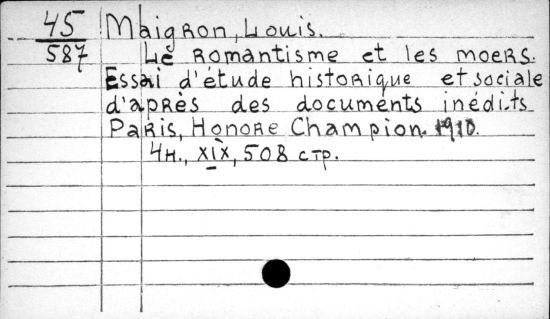 45 Maigron, Louis.
587 Le Romantisme et les moers.
Essai d'étude historique et sociale
d'après des documents inédits
Paris, Honore Champion. 1910.
4н., XIX, 508 стр.